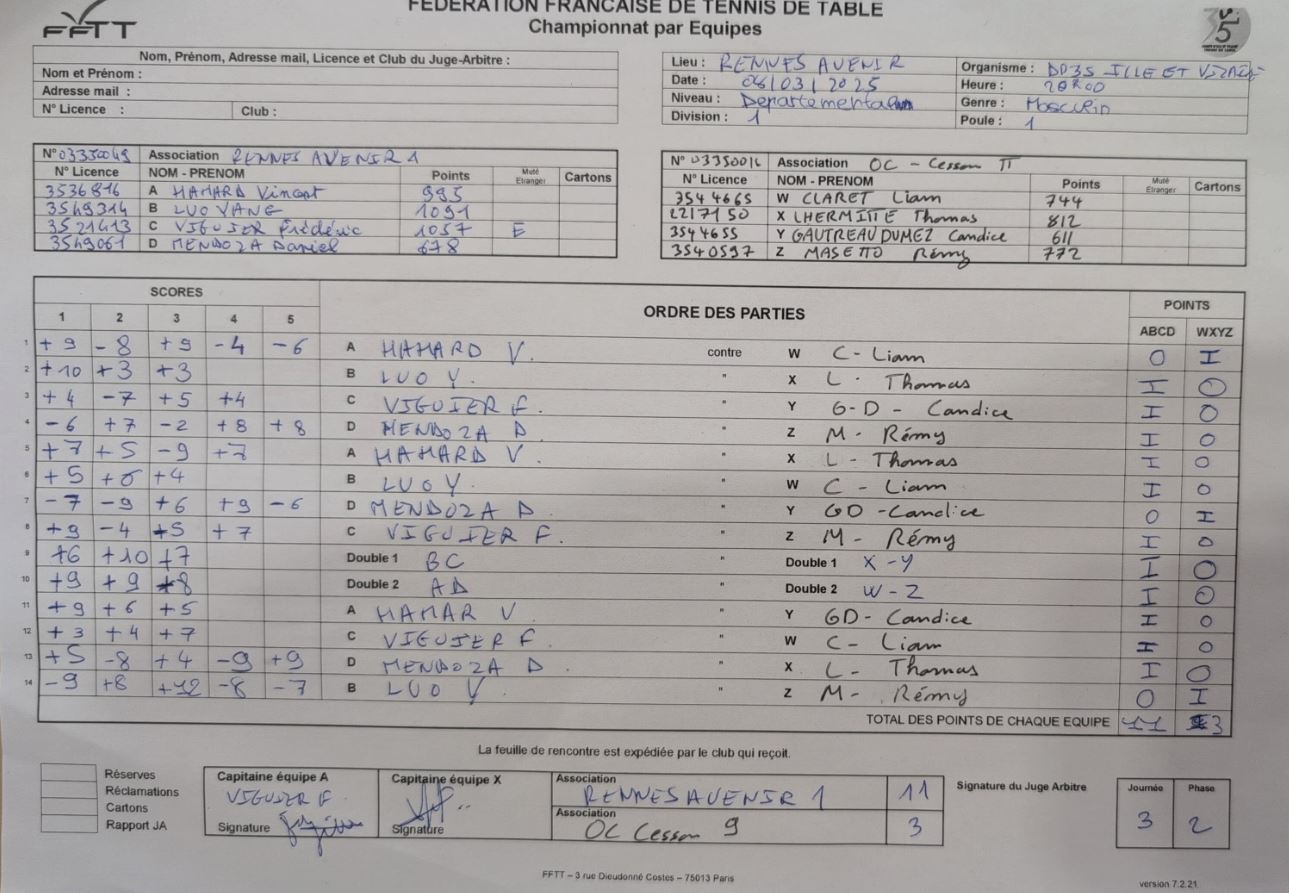 FEDERATION FRANCAISE DE TENNIS DE TABLE
FFTT
Championnat par Equipes
Nom, Prénom, Adresse mail, Licence et Club du Juge-Arbitre :
Nom et Prénom :
Adresse mail :
N° Licence : Club :
Lieu : RENNES AVENIR Organisme : DD35 ILLE ET
Date : 06/03/2025 Heure : 20h00
Niveau : Genre : Masculin
Division : 1 Poule : 1
N° 03350049 Association RENNES AVENIR 1
N° Licence NOM - PRENOM Points Muté Etranger Cartons
3536816 A HAMARD Vincent 995
3549314 B LUO YANG 1091
3521413 C VIGUIER Frédéric 1057 E
3549061 D MENDOZA Daniel 678
N° 0335001 Association OC - Cesson
N° Licence NOM - PRENOM Points Muté Etranger Cartons
354 4665 W CLARET Liam 744
2217150 X LHERMITTE Thomas 812
354 4655 Y GAUTREAU DUMEZ Candice 611
3540597 Z MASETTO Rémy 772
SCORES ORDRE DES PARTIES POINTS
1 2 3 4 5 ABCD WXYZ
1 +9 -8 +9 -4 -6 A HAMARD V. contre W C-Liam 0 I
2 +10 +3 +3 B LUO Y. " X L - Thomas I 0
3 +4 -7 +5 +4 C VIGUIER F. " Y G-D - Candice I 0
4 -6 +7 -2 +8 +8 D MENDOZA D " Z M- Rémy I 0
5 +7 +5 -9 +7 A HAMARD V. " X L - Thomas I 0
6 +5 +4 B LUO Y. " W C - Liam I 0
7 -7 -9 +6 +9 -6 D MENDOZA D " Y GD -Candice 0 I
8 +9 -4 +5 +7 C VIGUIER F. " Z M- Rémy I 0
9 +6 +10 +7 Double 1 BC " Double 1 X-Y I 0
10 +9 +9 +8 Double 2 AD " Double 2 W-Z I 0
11 +9 +6 +5 A HAMAR V " Y GD- Candice I 0
12 +3 +4 +7 C VIGUIER F. " W C - Liam I 0
13 +5 -8 +4 -9 +9 D MENDOZA D " X L - Thomas I 0
14 -9 +8 +12 -8 -7 B LUO Y " Z M- Rémy 0 I
TOTAL DES POINTS DE CHAQUE EQUIPE 11 3
La feuille de rencontre est expédiée par le club qui reçoit.
Réserves
Réclamations
Cartons
Rapport JA
Capitaine équipe A
VIGUIER F
Signature
Capitaine équipe X
Signature
Association
RENNES AVENIR 1 11
Association
OC Cesson 9 3
Signature du Juge Arbitre
Journée Phase
3 2
FFTT – 3 rue Dieudonné Costes – 75013 Paris
version 7.2.21